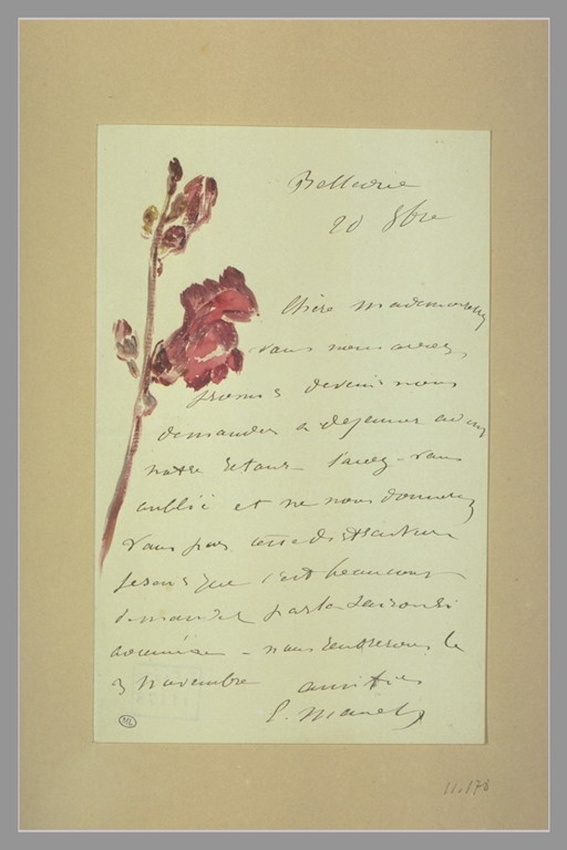 Bellevue
20 8bre
Chère mademoiselle
vous nous aviez
promis de venir nous
demander a dejeuner avant
notre retour l'avez-vous
oublié et ne nous donnerez
vous pas cette distraction
je sais que c'est beaucoup
demander par la saison
 - nous rentrerons le
3 novembre
amitiés
E. Manet
ML
11.178